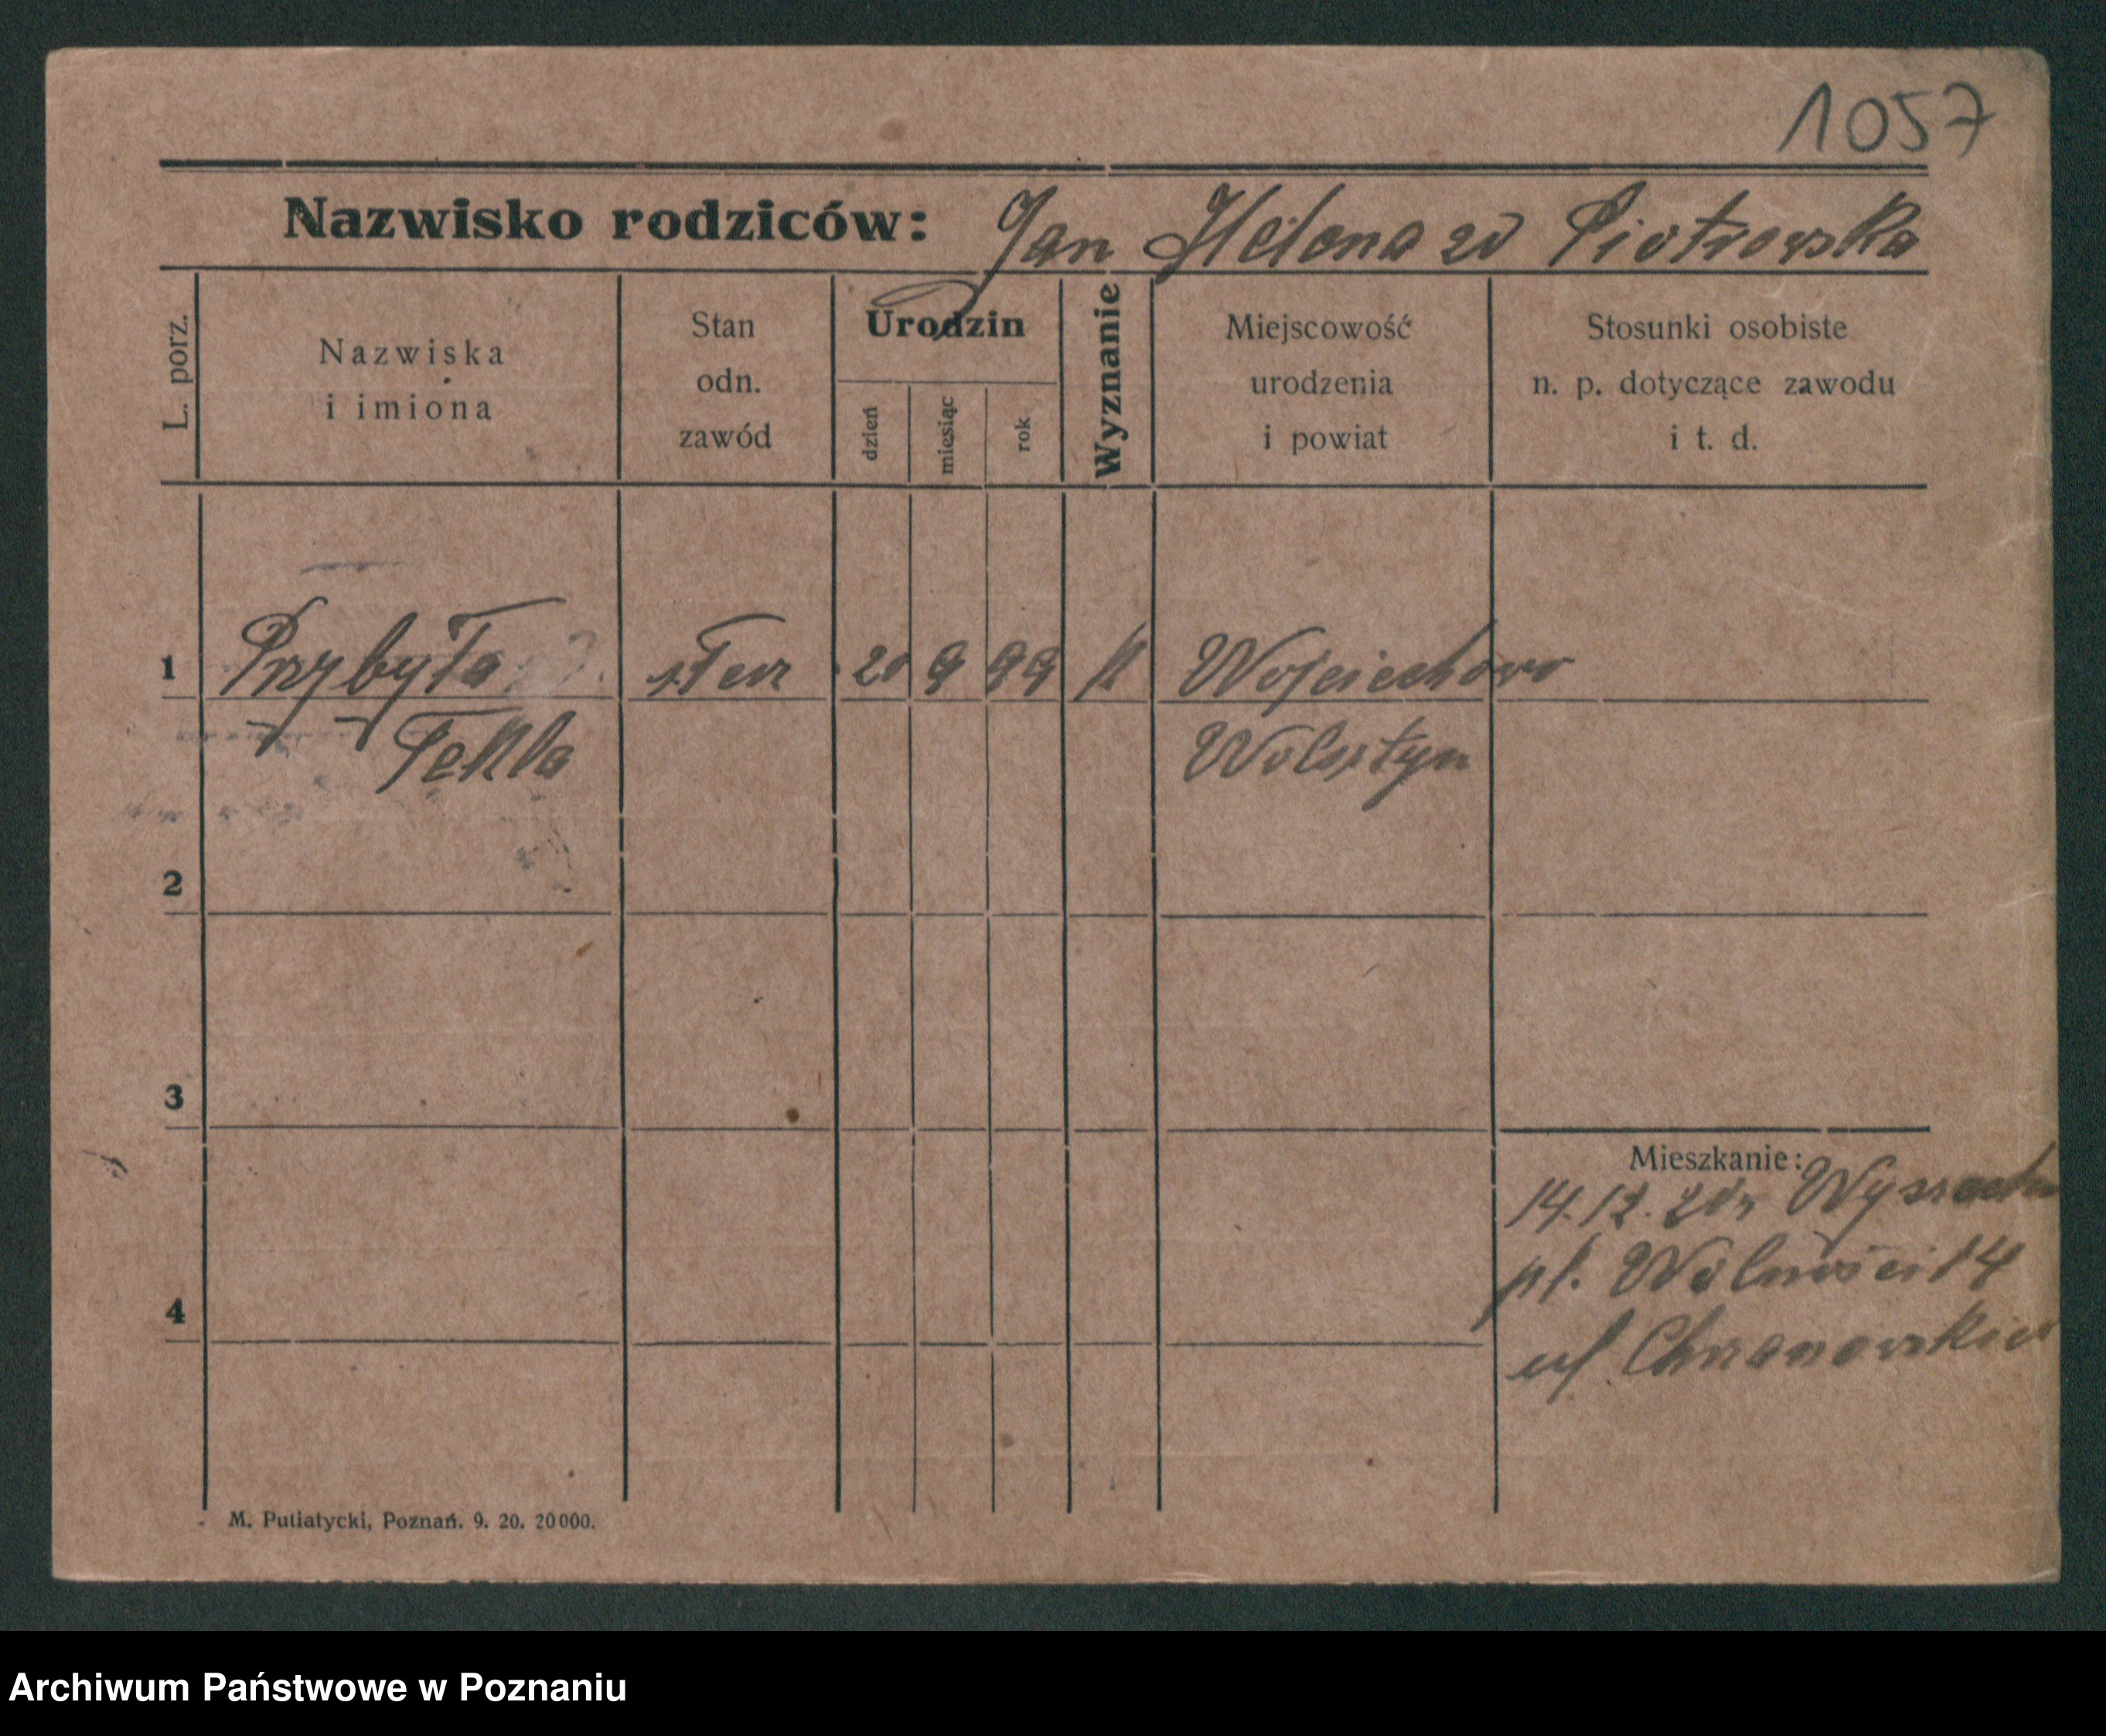 1057
Nazwisko rodziców: Jan Helena zd Piotrowska
L. porz.
Nazwiska
i imiona
Stan
odn.
zawód
Urodzin
dzień
miesiąc
rok
Wyznanie
Miejscowość
urodzenia
i powiat
Stosunki osobiste
n. p. dotyczące zawodu
i t. d.
1 Przybyła 20 9 99 k Wojciechowo
Tekla Wolsztyn
2
3
4
Mieszkanie:
14.12.
pl. Wolności 14
M. Putiatycki, Poznań. 9. 20. 20000.
Archiwum Państwowe w Poznaniu